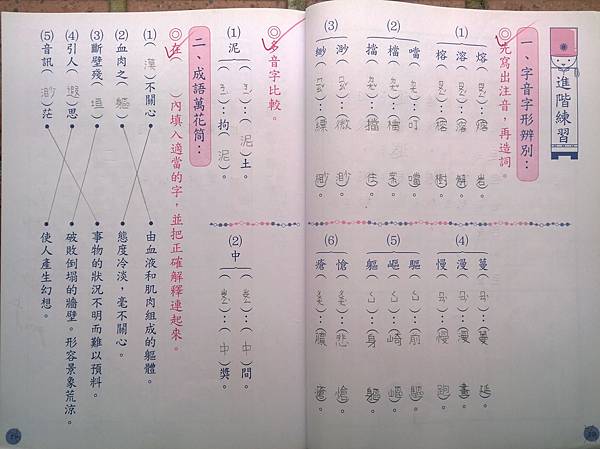 進階練習
一、字音字形辨別：
◎先寫出注音，再造詞。
(1) 熔（ㄖㄨㄥˊ）：（熔岩）。
溶（ㄖㄨㄥˊ）：（溶解）。
榕（ㄖㄨㄥˊ）：（榕樹）。
(2) 噹（ㄉㄤ）：（叮噹）。
檔（ ）：（檔案）。
擋（ㄉㄤˇ）：（擋住）。
(3) 渺（ㄇㄧㄠˇ）：（微渺）。
緲（ㄇㄧㄠˇ）：（縹緲）。
(4) 蔓（ㄇㄢˋ）：（蔓延）。
漫（ㄇㄢˋ）：（漫畫）。
慢（ㄇㄢˋ）：（慢跑）。
(5) 驅（ㄑㄩ）：（前驅）。
嶇（ㄑㄩ）：（崎嶇）。
軀（ㄑㄩ）：（身軀）。
(6) 愴（ㄔㄨㄤˋ）：（悲愴）。
瘡（ㄔㄨㄤ）：（膿瘡）。
◎多音字比較。
(1) 泥（ㄋㄧˊ）：（泥）土。
（ㄋㄧˋ）：拘（泥）。
(2) 中（ㄓㄨㄥ）：（中）間。
（ㄓㄨㄥˋ）：（中）獎。
二、成語萬花筒：
◎在（ ）內填入適當的字，並把正確解釋連起來。
(1)（漠）不關心
(2) 血肉之（軀）
(3) 斷壁殘（垣）
(4) 引人（遐）思
(5) 音訊（渺）茫
由血液和肌肉組成的軀體。
態度冷淡，毫不關心。
事物的狀況不明而難以預料。
破敗倒塌的牆壁。形容景象荒涼。
使人產生幻想。